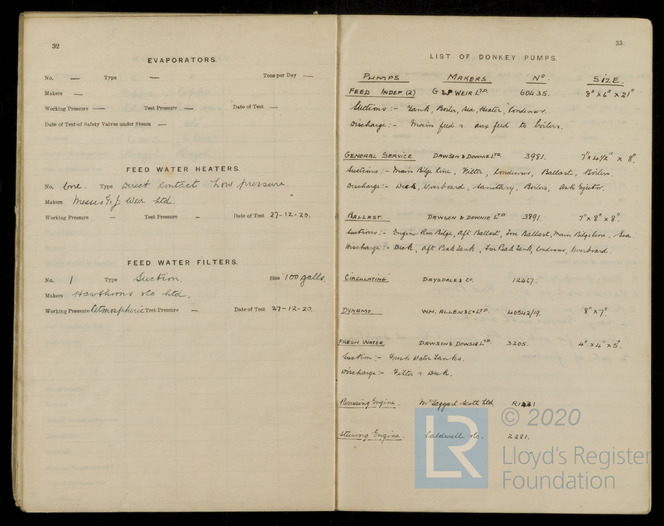 32
EVAPORATORS.
No. — Type — Tons per Day —
Makers —
Working Pressure — Test Pressure — Date of Test —
Date of Test of Safety Valves under Steam —
FEED WATER HEATERS.
No. One. Type Direct Contact Low pressure.
Makers Messrs G. J. Weir Ltd.
Working Pressure — Test Pressure — Date of Test 27-12-20.
FEED WATER FILTERS.
No. 1 Type Suction. Size 100 galls.
Makers Hawthorns & Co Ltd.
Working Pressure Atmospheric Test Pressure — Date of Test 27-12-20.
33
LIST OF DONKEY PUMPS.
PUMPS MAKERS No. SIZE.
FEED INDEP (2) G & J WEIR LTD. 60435. 8" x 6" x 21"
Suctions:- Tank, Boiler, Sea, Heater, Condenser.
Discharge:- Main feed & aux feed to boilers.
GENERAL SERVICE DAWSON & DOWNIE LTD 3981. 7" x 4½" x 8".
Suctions:- Main Bilge Line, Filter, Condenser, Ballast, Boilers.
Discharge:- Deck, Overboard, Sanitary, Boilers, Ash Ejector.
BALLAST DAWSON & DOWNIE LTD 3891. 7" x 8" x 8".
Suctions:- Engine Rm Bilge, Aft Ballast, Fore Ballast, Main Bilge Line, Sea
Discharge:- Deck, Aft Peak Tank, Fore Peak Tank, Condenser, Overboard.
CIRCULATING DRYSDALE & Co. 12467.
DYNAMO WM. ALLEN & Co LTD. 40542/19. 8" x 7".
FRESH WATER DAWSON & DOWNIE LTD. 3205. 4" x 4" x 5".
Suction:- Fresh Water Tanks.
Discharge:- Filter & Deck.
Reversing Engine. McTaggart Scott Ltd.
Steering Engine. Caldwell & Co. 2281.
© 2020
LR
Lloyd's Register
Foundation